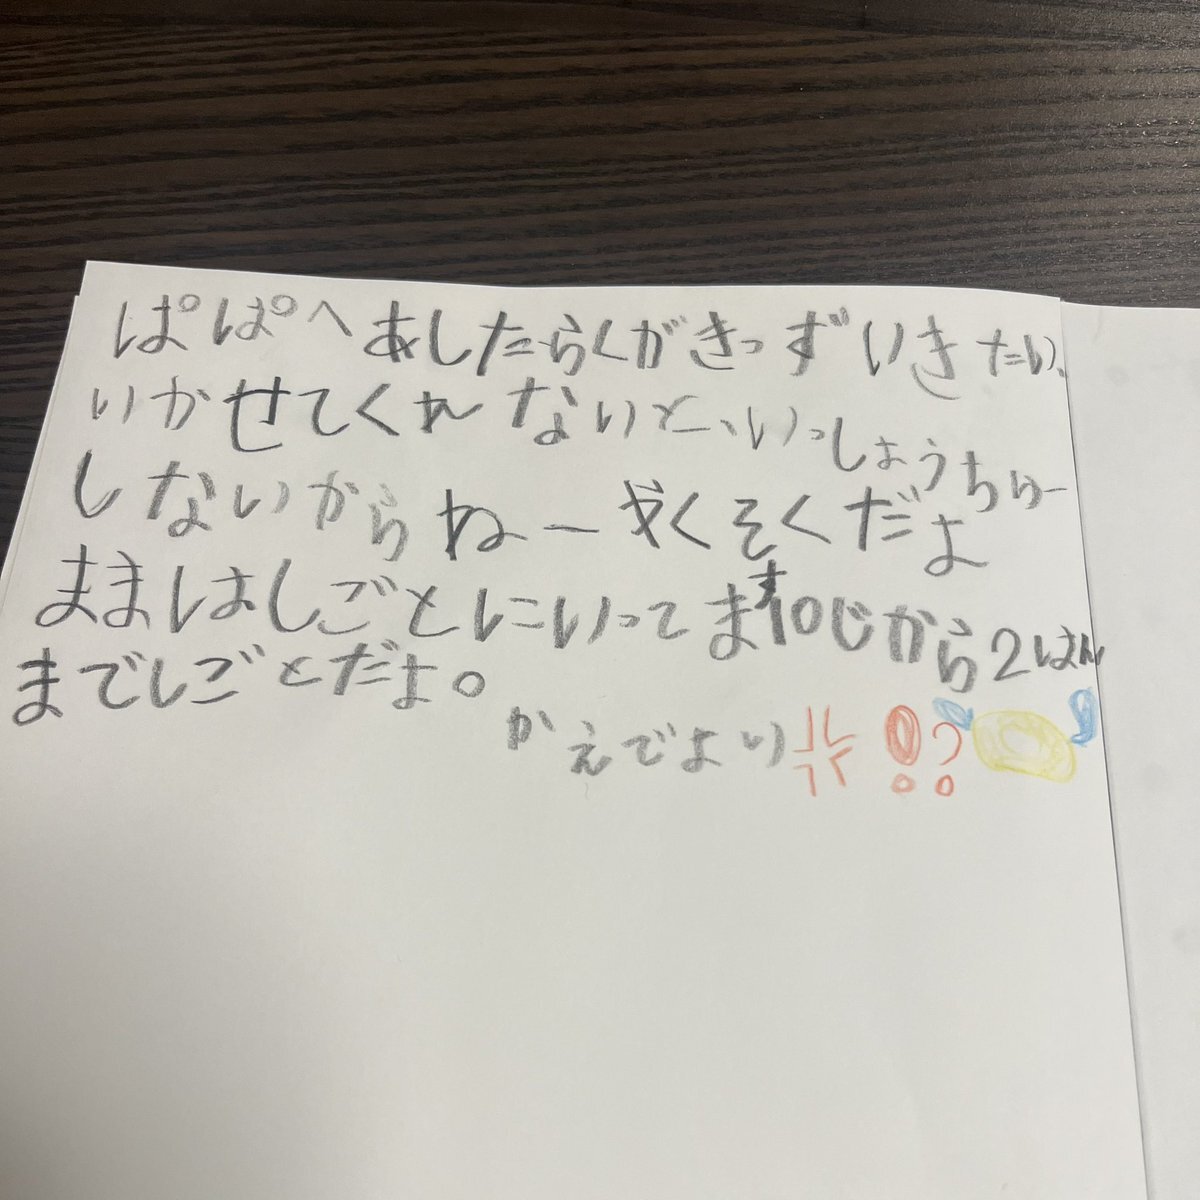 ぱぱへあしたらくがきっずいきたい、
いかせてくれないと、いっしょうちゅー
しないからねーやくそくだよ
ままはしごとにいってます10じから2じはん
までしごとだよ。
かえでより💢❗❓